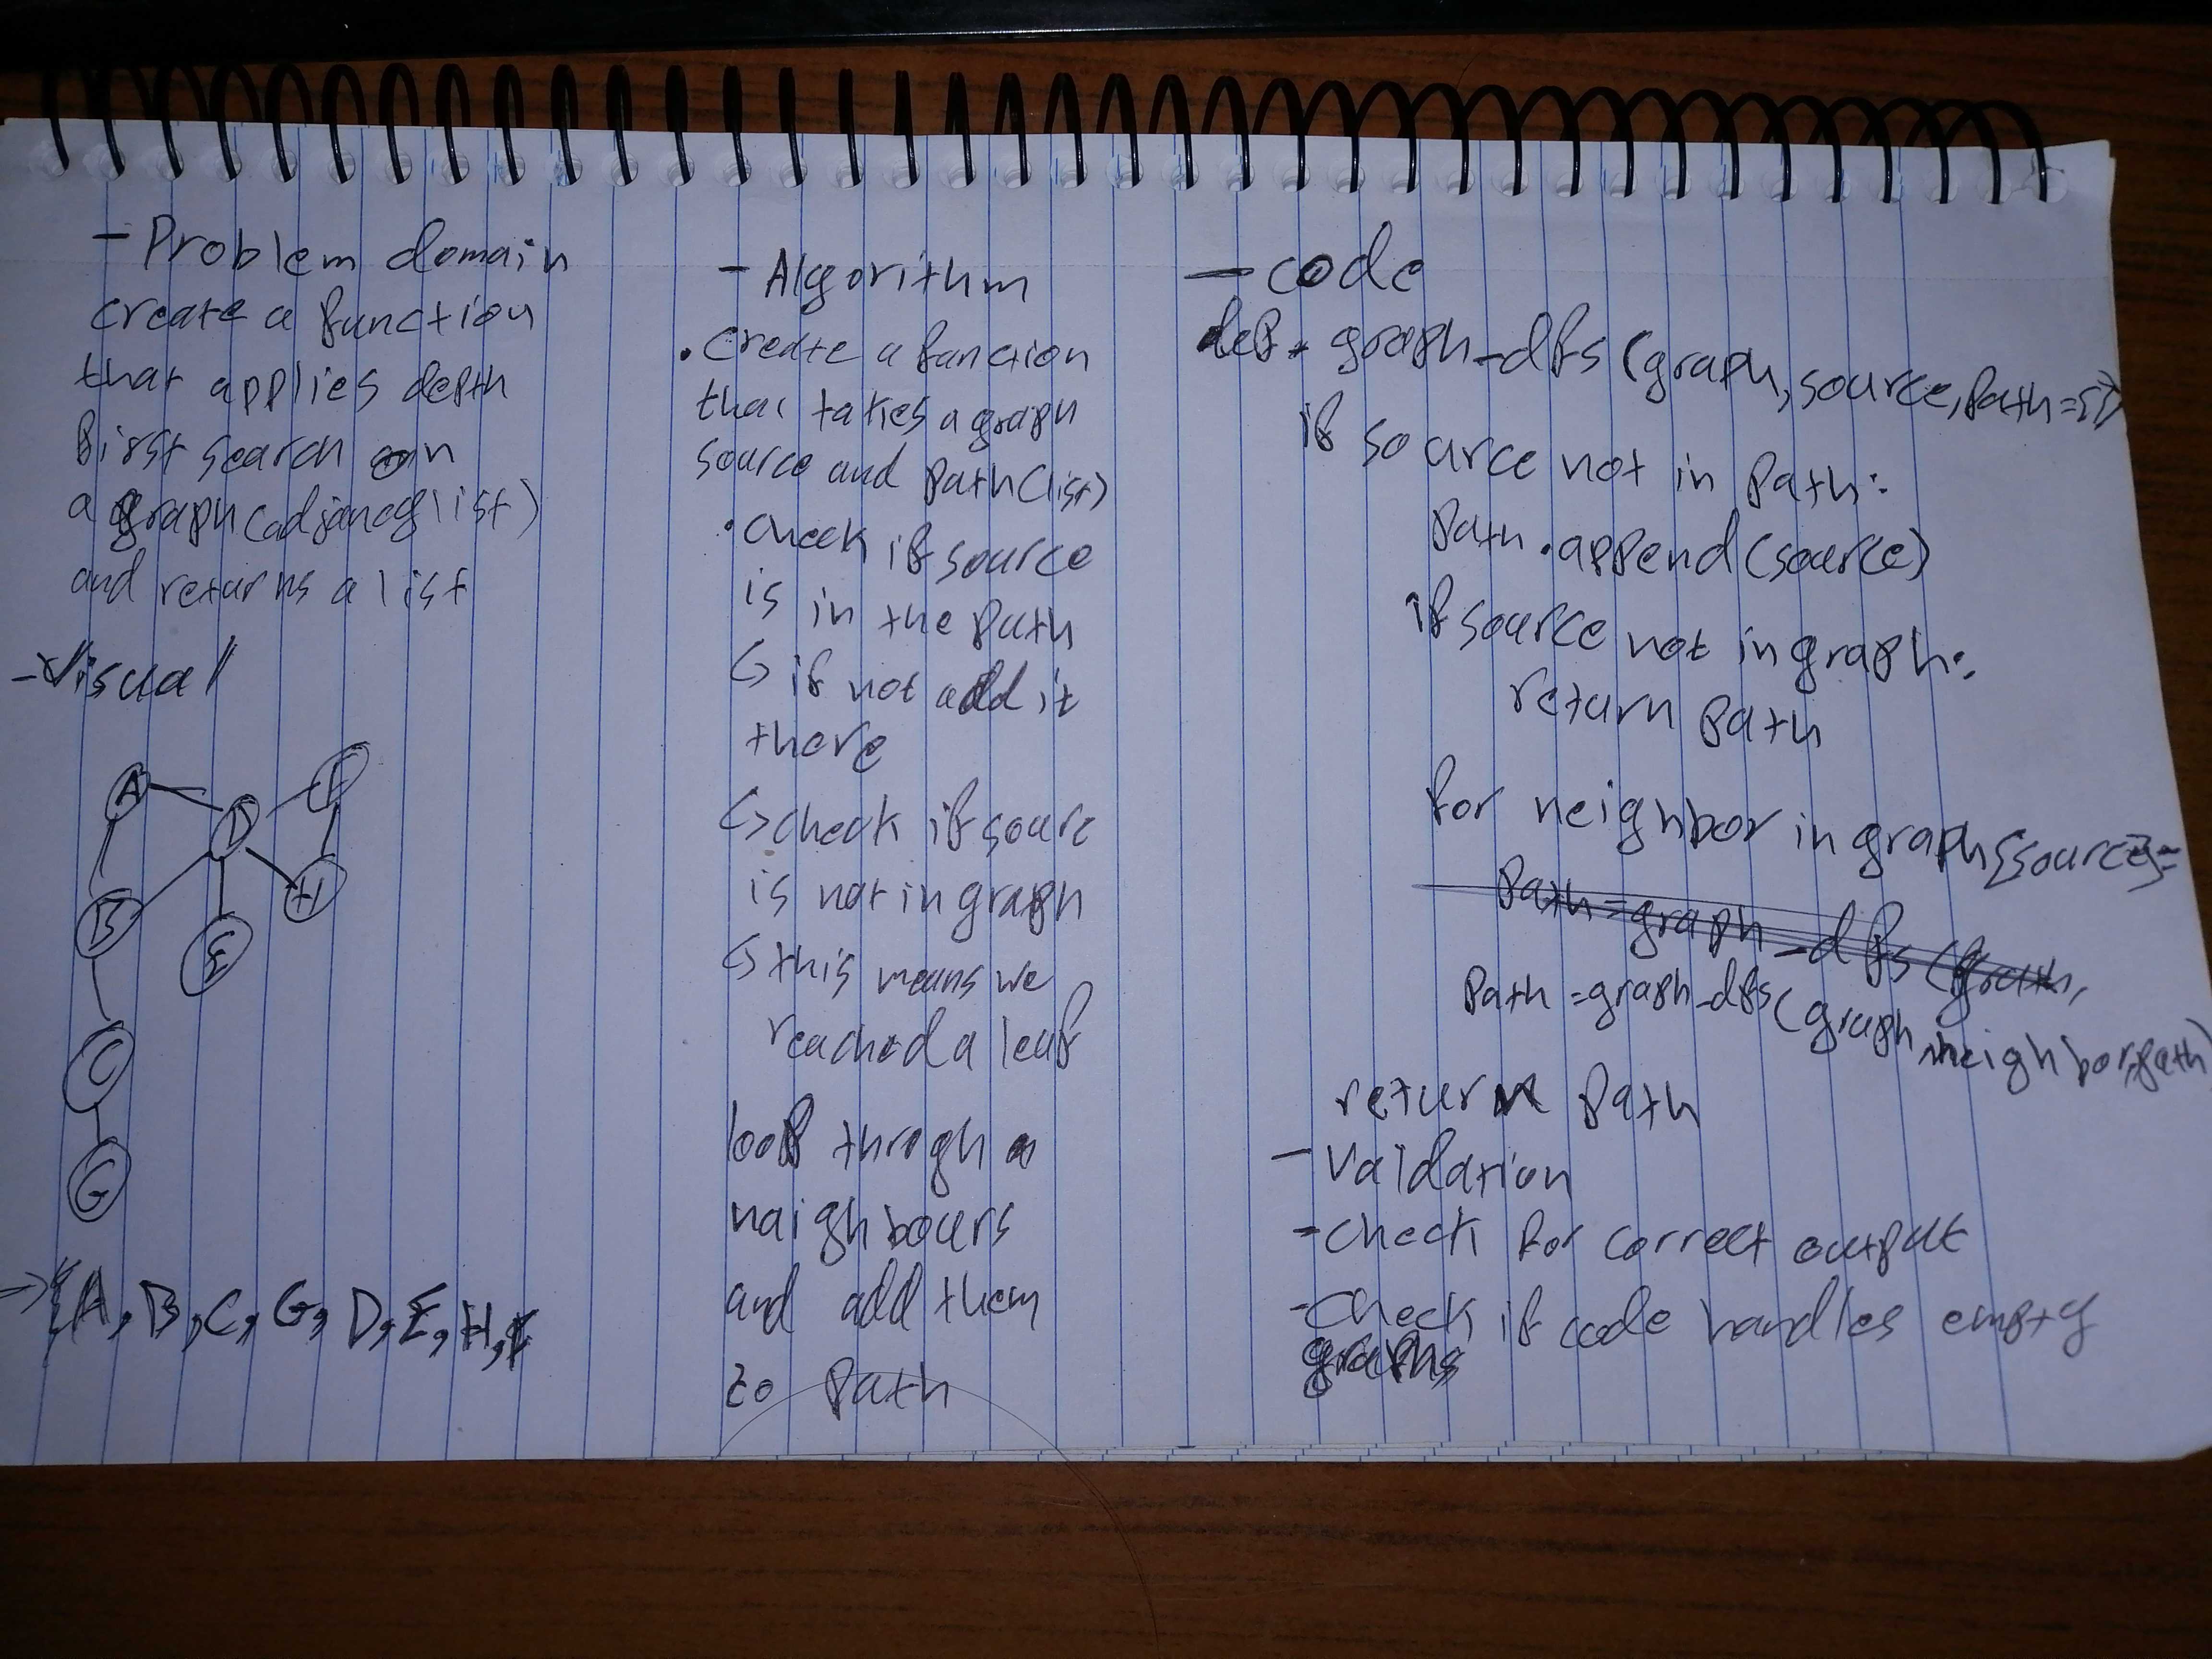 - Problem domain
create a function
that applies depth
first search on
a graph (adjancy list)
and returns a list
- Visual
A
D
F
B
H
E
C
G
→ [A, B, C, G, D, E, H, F
- Algorithm
• Create a function
that takes a graph
source and path (list)
• check if source
is in the path
↳ if not add it
there
↳ check if sourc
is not in graph
↳ this means we
reached a leaf
loop throgh a
naighbours
and add them
to path
- code
def graph_dfs(graph, source, path=[])
if source not in path:
path.append(source)
if source not in graph:
return path
for neighbor in graph[source]:
path=graph_dfs(
path=graph_dfs(graph, neighbor, path)
return path
- Validation
- check for correct output
- Check if code handles empty
graphs